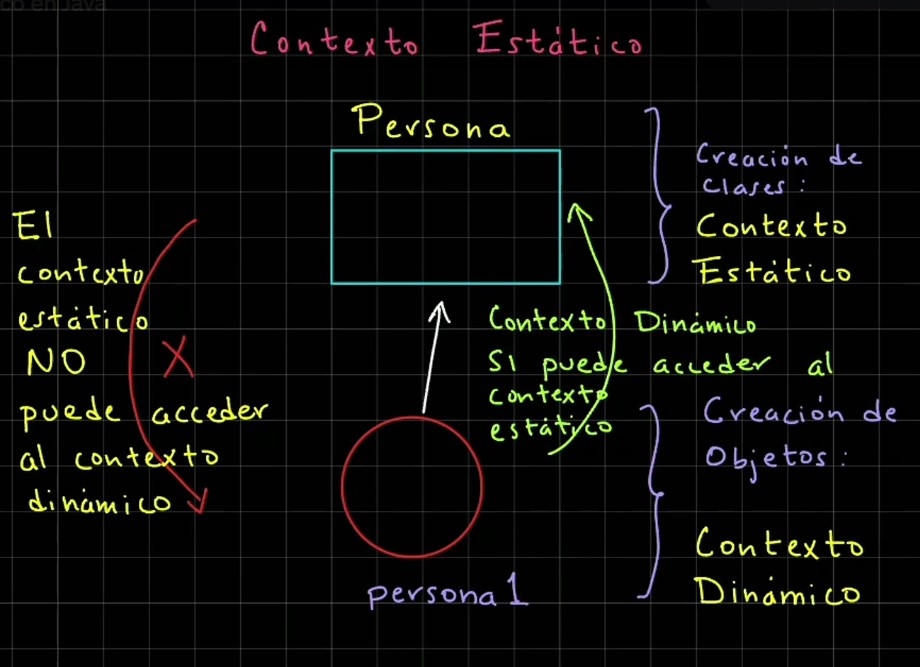 co en Java
Contexto Estático
Persona
Creación de
Clases:
Contexto
Estático
El
contexto
estático
NO
puede acceder
al contexto
dinámico
X
Contexto Dinámico
SI puede acceder al
contexto
estático
Creación de
Objetos:
Contexto
Dinámico
persona1